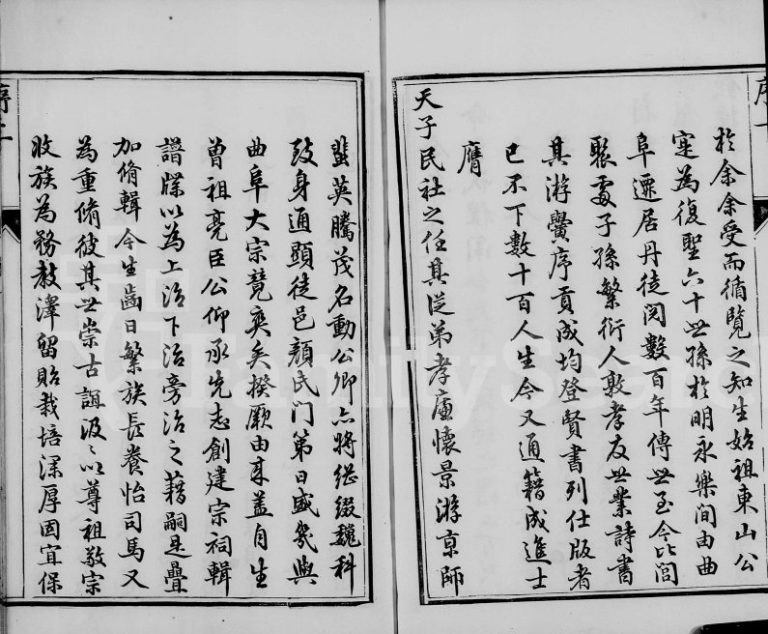 於余余受而循覽之知生始祖東山公
寔為復聖六十世孫於明永樂間由曲
阜遷居丹徒閱數百年傳世至今比閭
聚處子孫繁衍人敦孝友世業詩書
其游黌序貢成均登賢書列仕版者
已不下數十百人生今又通籍成進士
膺
天子民社之任其從弟孝廉懷景游京師
蜚英騰茂名動公卿亦將繼綴巍科
致身通顯徒邑顏氏門第日盛幾與
曲阜大宗競爽矣揆厥由來蓋自生
曾祖亮臣公仰承先志創建宗祠輯
譜牒以為上治下治旁治之藉嗣是疊
加脩輯今生齒日繁族長養怡司馬又
為重脩彼其世崇古誼汲〻以尊祖敬宗
收族為務教澤留貽栽培深厚固宜保
序一
序二
FamilySearch